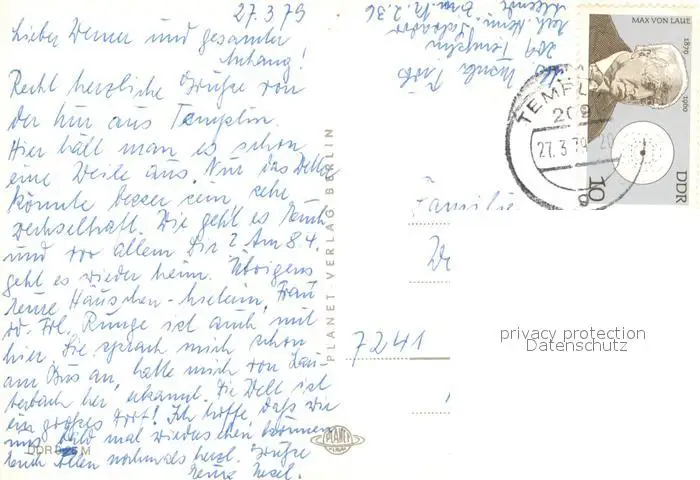 27.3.79
Lieber Werner und gesamter
Anhang!
Recht herzliche Grüße von
der Kur aus Templin.
Hier hält man es schon
eine Weile aus. Nur das Wetter
könnte besser sein, sehr
wechselhaft. Wie geht es Euch
und vor allem Dir? Am 8.4.
geht es wieder heim. Übrigens
Eure Frau
od. Frl. Runge ist auch mit
hier. Sie sprach mich schon
am Bus an, hatte mich von Lau-
terbach her erkannt. Die Welt ist
ein großes Dorf! Ich hoffe, daß wir
uns bald mal wiedersehen können
Euch allen nochmals herzl. Grüße
Eure
DDR
PLANET-VERLAG BERLIN
PLANET
209 Templin
12.2.36
MAX VON LAUE
1879 1960
DDR
10
TEMPLIN
209
27.3.79-20
Familie
We
7241
privacy protection
Datenschutz